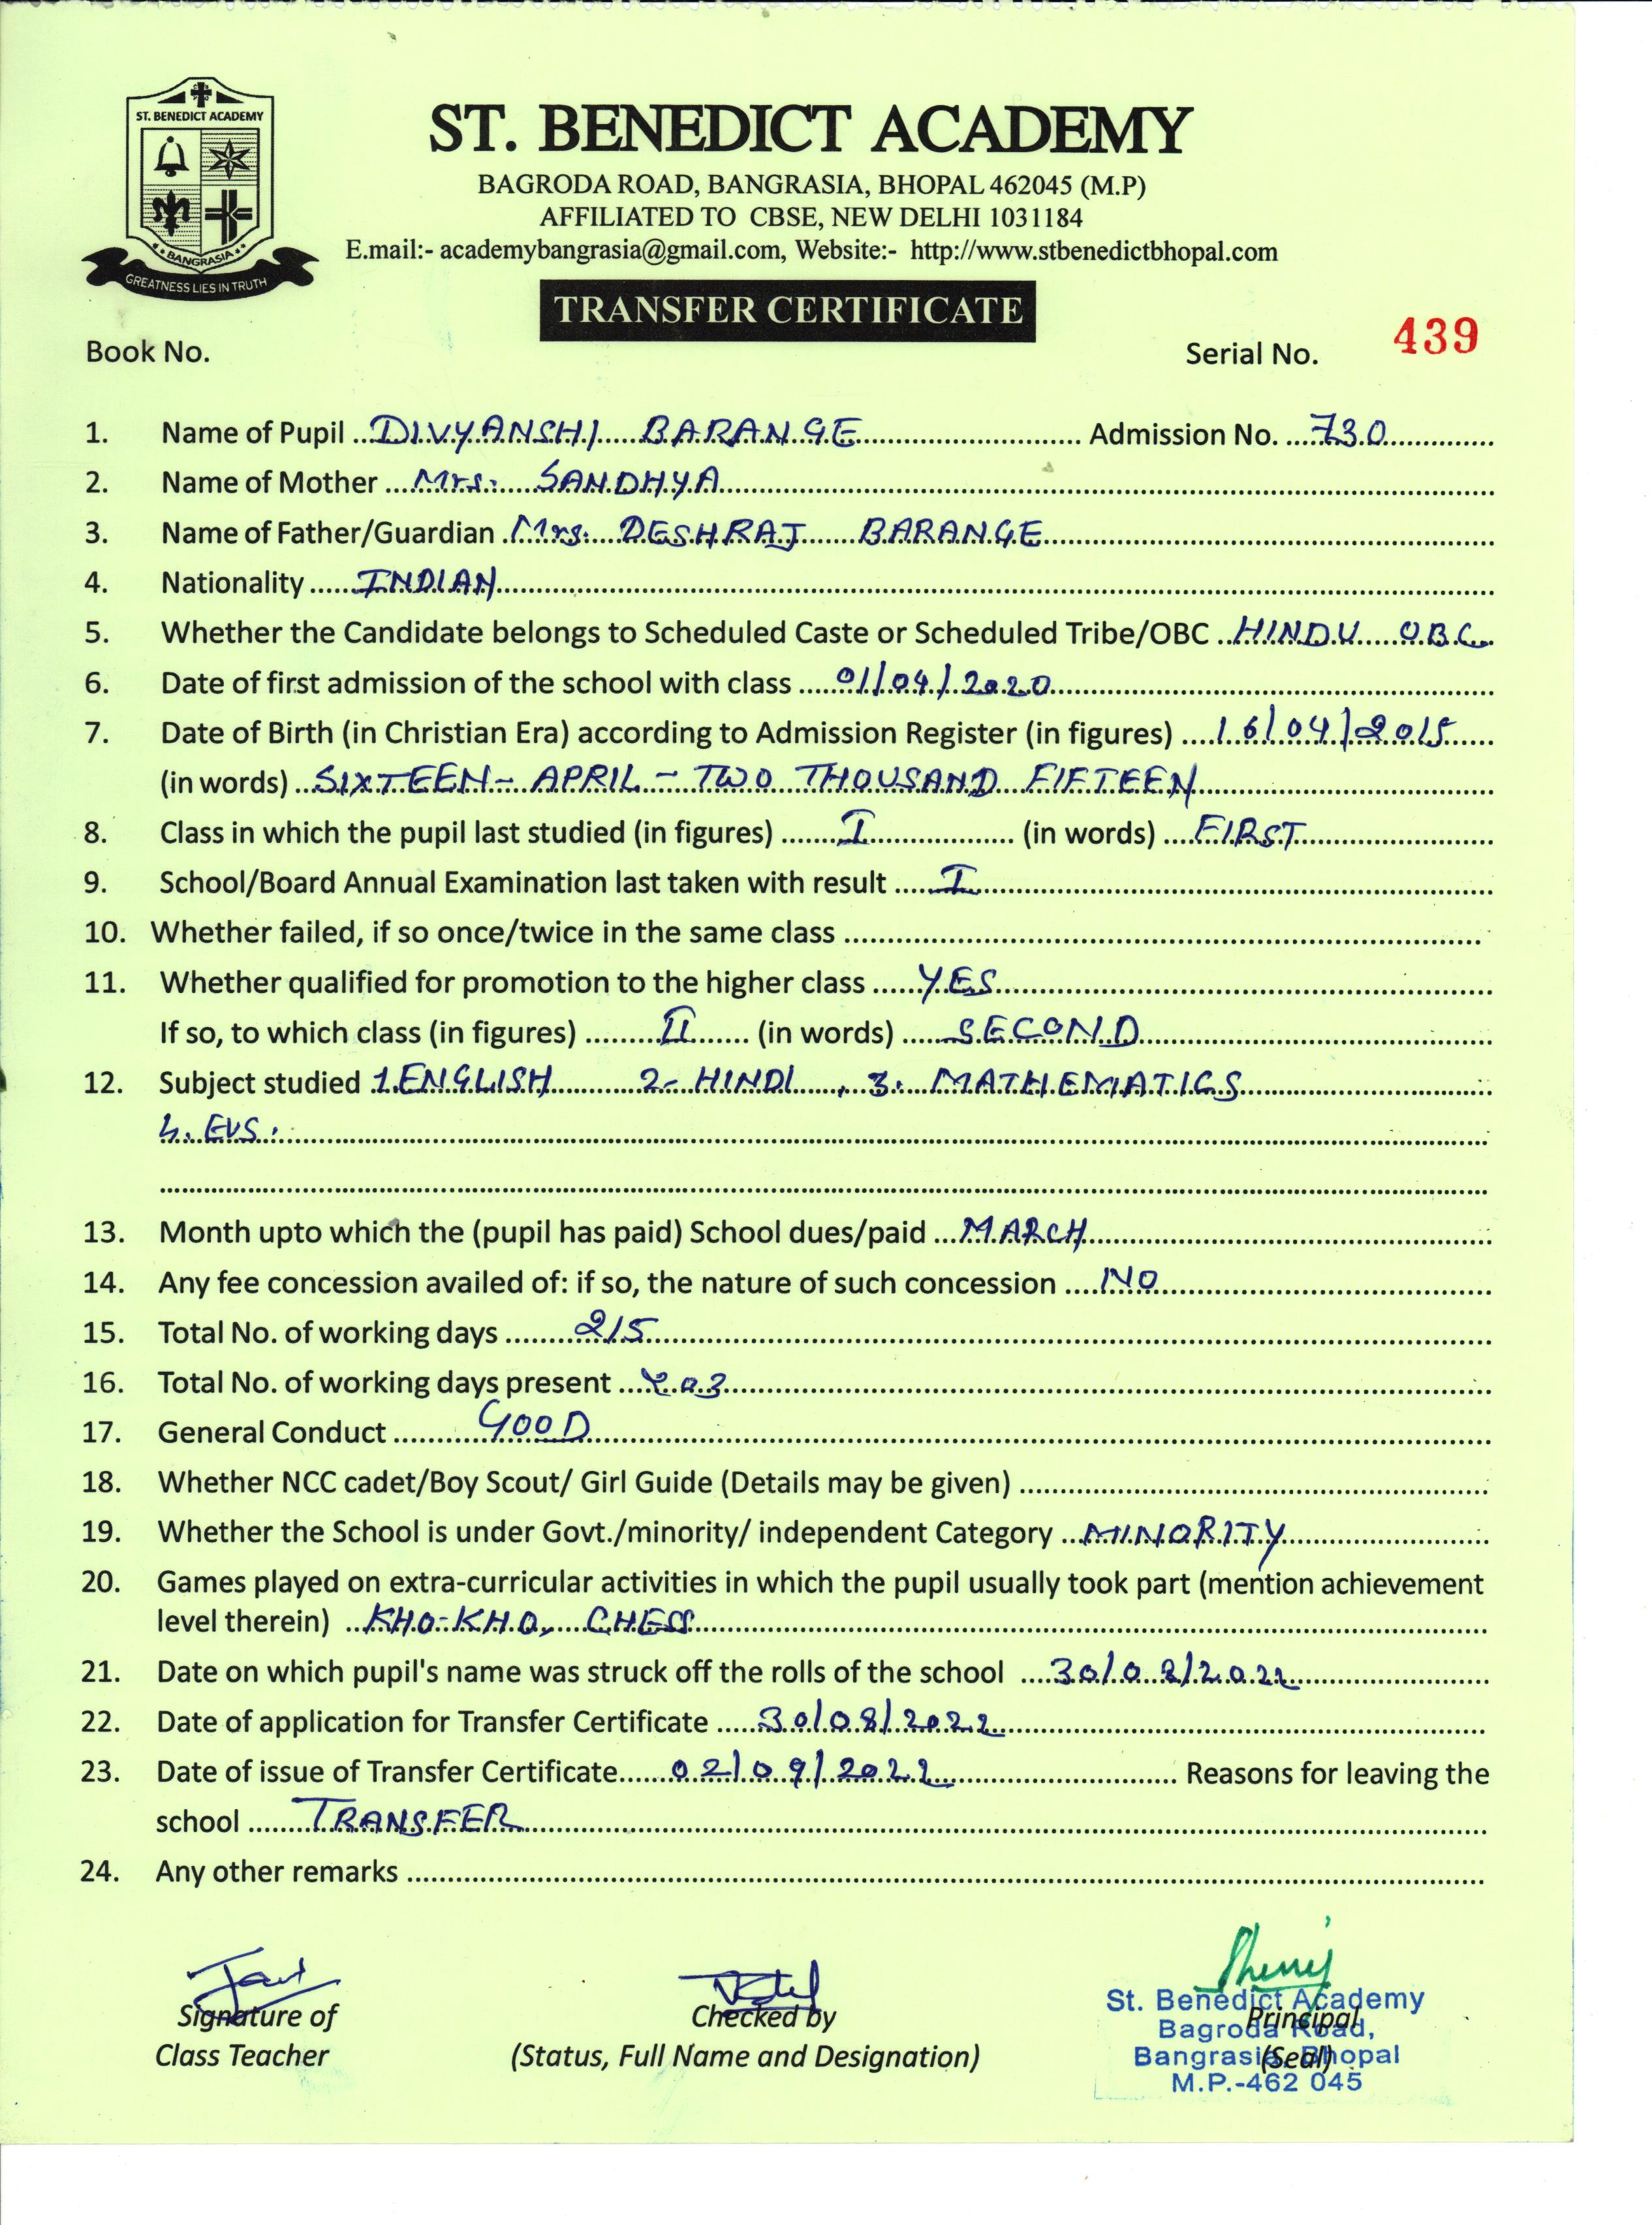 ST. BENEDICT ACADEMY
BANGRASIA
GREATNESS LIES IN TRUTH
ST. BENEDICT ACADEMY
BAGRODA ROAD, BANGRASIA, BHOPAL 462045 (M.P)
AFFILIATED TO CBSE, NEW DELHI 1031184
E.mail:- academybangrasia@gmail.com, Website:- http://www.stbenedictbhopal.com
TRANSFER CERTIFICATE
Book No. Serial No. 439
1. Name of Pupil DIVYANSHI BARANGE Admission No. 730
2. Name of Mother Mrs. SANDHYA
3. Name of Father/Guardian Mrs. DESHRAJ BARANGE
4. Nationality INDIAN
5. Whether the Candidate belongs to Scheduled Caste or Scheduled Tribe/OBC HINDU OBC
6. Date of first admission of the school with class 01/04/2020
7. Date of Birth (in Christian Era) according to Admission Register (in figures) 16/04/2015
(in words) SIXTEEN - APRIL - TWO THOUSAND FIFTEEN
8. Class in which the pupil last studied (in figures) I (in words) FIRST
9. School/Board Annual Examination last taken with result I
10. Whether failed, if so once/twice in the same class
11. Whether qualified for promotion to the higher class YES
If so, to which class (in figures) II (in words) SECOND
12. Subject studied 1. ENGLISH 2- HINDI, 3. MATHEMATICS
4. EVS.
13. Month upto which the (pupil has paid) School dues/paid MARCH
14. Any fee concession availed of: if so, the nature of such concession NO
15. Total No. of working days 215
16. Total No. of working days present 203
17. General Conduct GOOD
18. Whether NCC cadet/Boy Scout/ Girl Guide (Details may be given)
19. Whether the School is under Govt./minority/ independent Category MINORITY
20. Games played on extra-curricular activities in which the pupil usually took part (mention achievement
level therein) KHO-KHO, CHESS
21. Date on which pupil's name was struck off the rolls of the school 30/08/2022
22. Date of application for Transfer Certificate 30/08/2022
23. Date of issue of Transfer Certificate 02/09/2022 Reasons for leaving the
school TRANSFER
24. Any other remarks
Signature of
Class Teacher
Checked by
(Status, Full Name and Designation)
St. Benedict Academy
Principal
Bagroda Road,
Bangrasia, Bhopal
(Seal)
M.P.-462 045